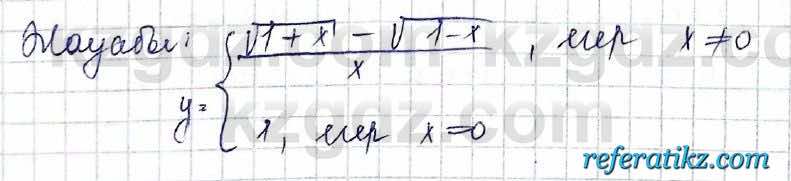 Жауабы: √1+x - √1-x / x , егер x≠0
y= { 1, егер x=0
kzgdz.com
referatikz.com